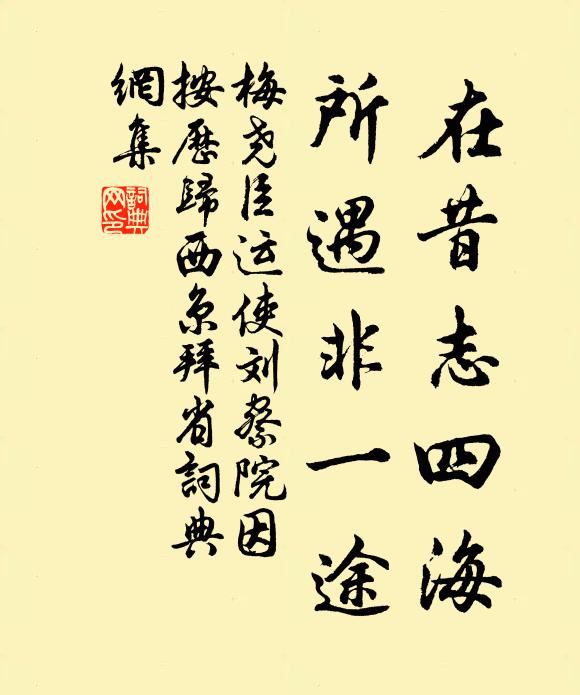 在昔志四海
所遇非一途
梅尧臣运使刘察院因
按歷歸西京拜省詞典
網集
詞典
网印